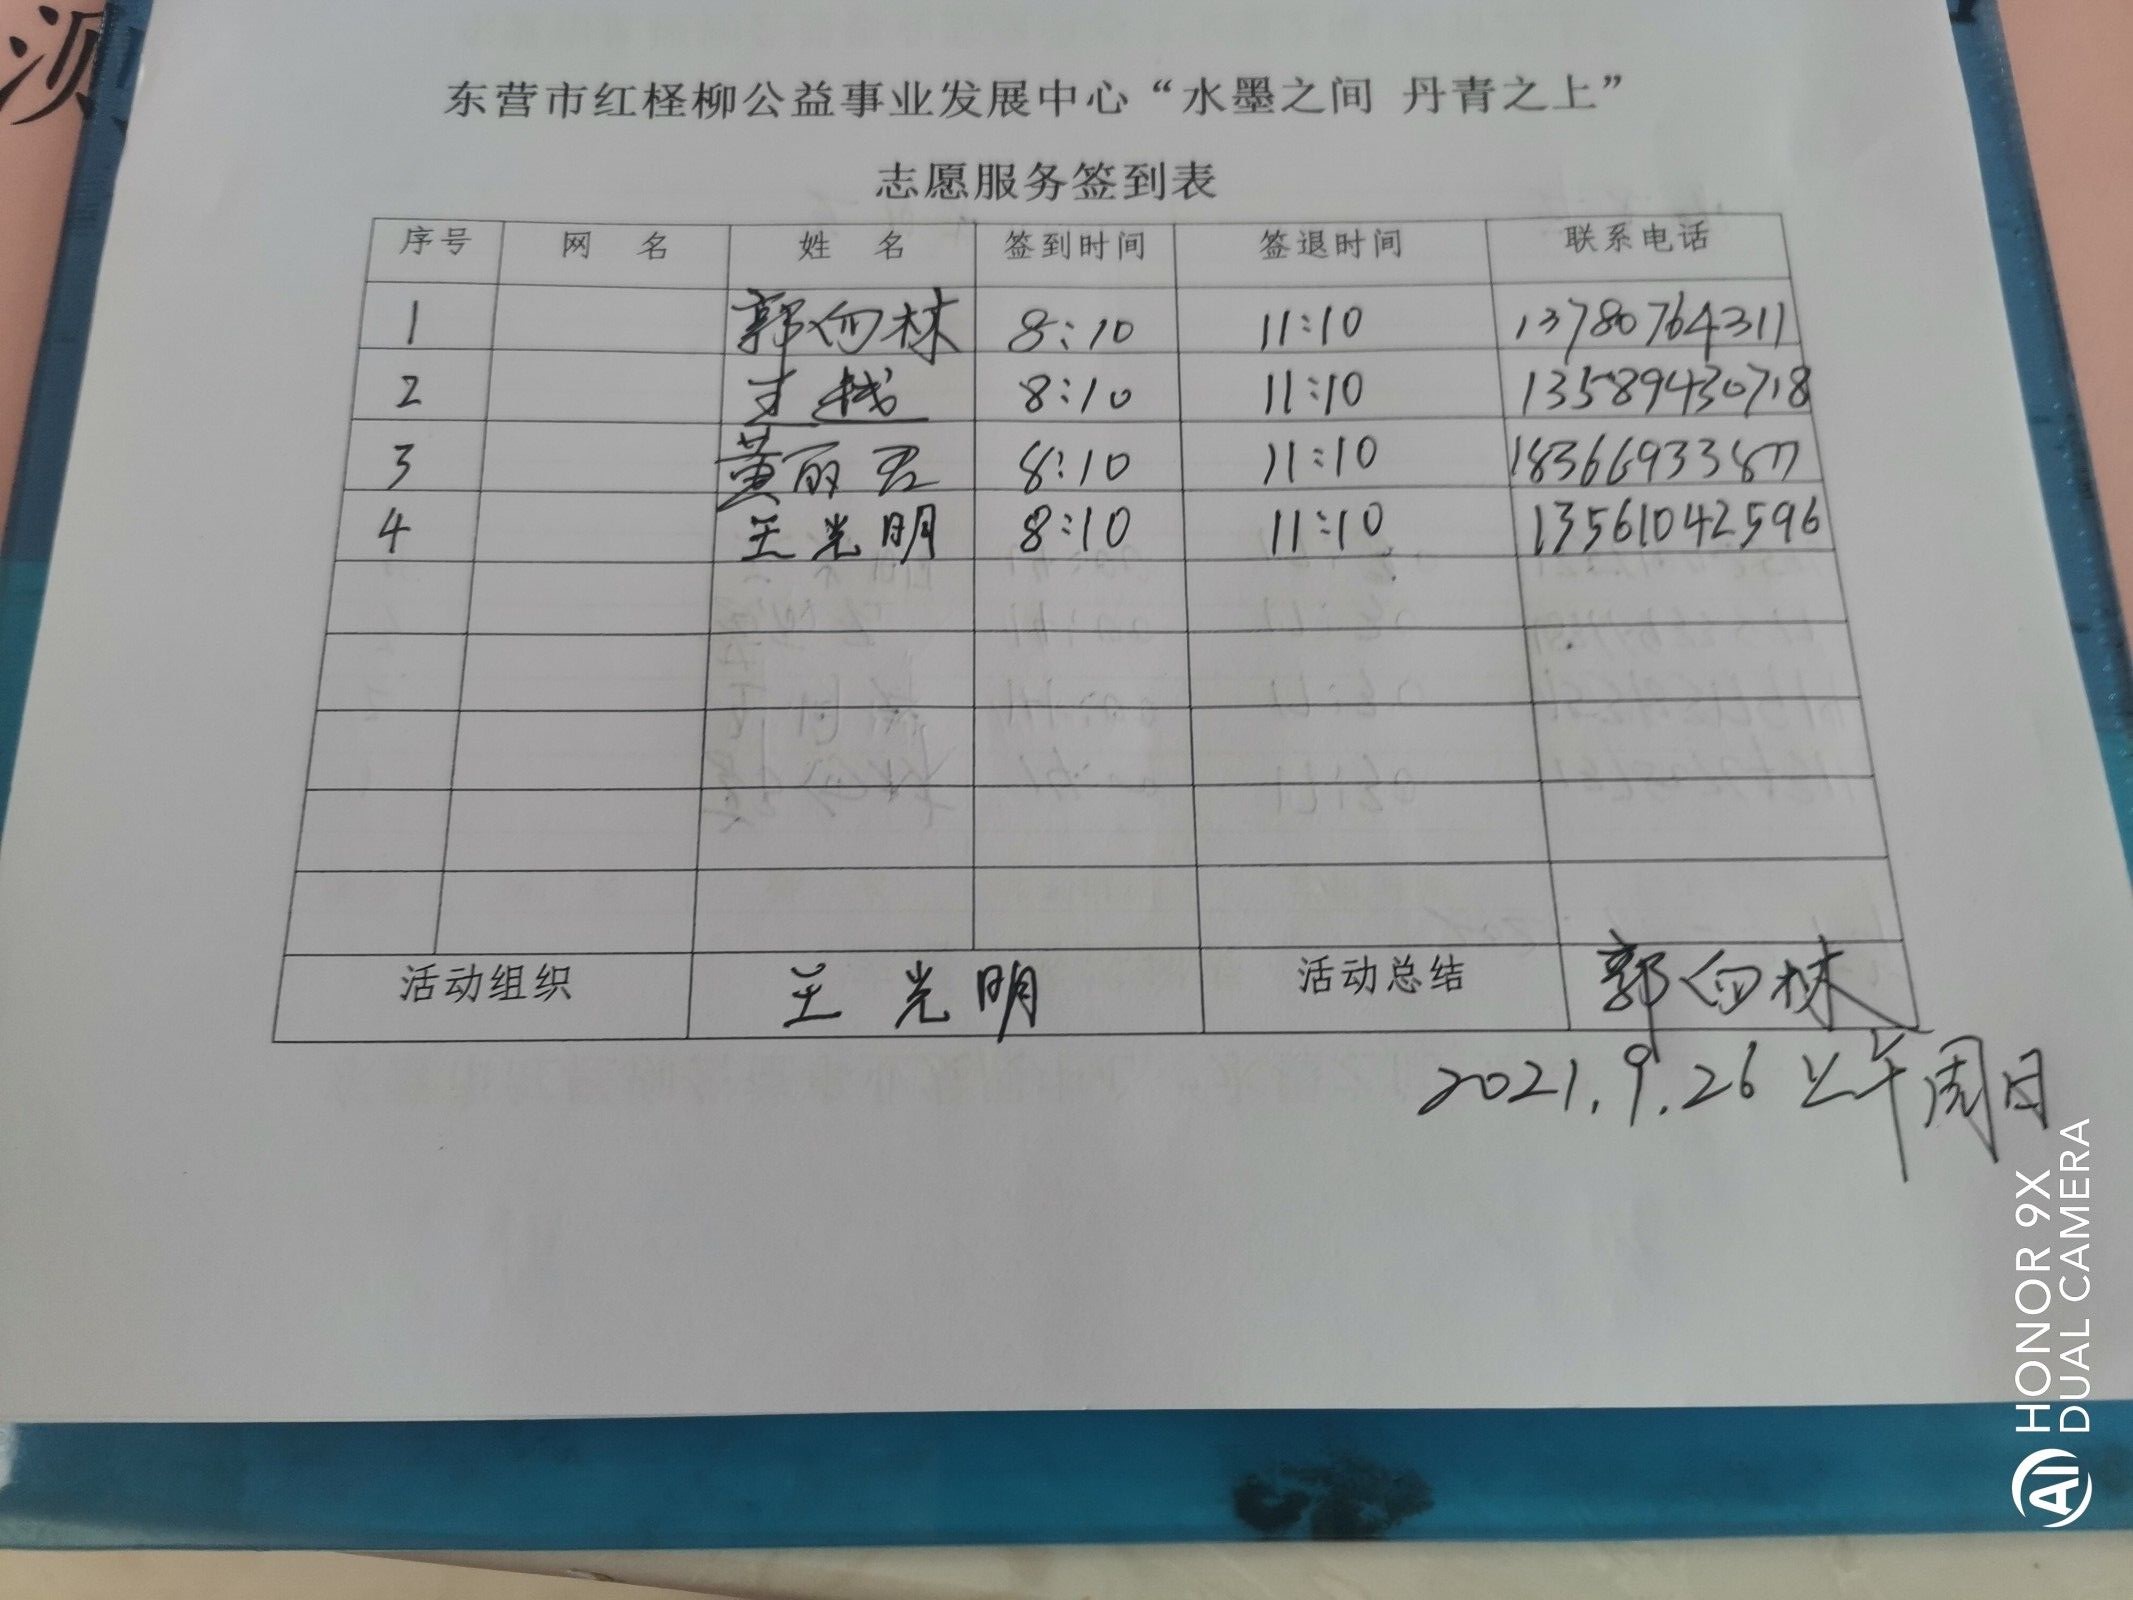 东营市红柽柳公益事业发展中心“水墨之间 丹青之上”
志愿服务签到表
序号 网 名 姓 名 签到时间 签退时间 联系电话
1 郭向林 8:10 11:10 13780764311
2 8:10 11:10 13589430718
3 黄丽君 8:10 11:10 18366933877
4 王光明 8:10 11:10 13561042596
活动组织 王光明 活动总结 郭向林
2021.9.26 上午周日
HONOR 9X
DUAL CAMERA
AI